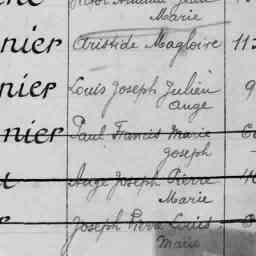 Marie
nier Aristide Magloire 11
nier Louis Joseph Julien 9
ange
nier Paul Francis Marie
Joseph
Ange Joseph Pierre
Marie
Joseph Pierre Louis
Marie